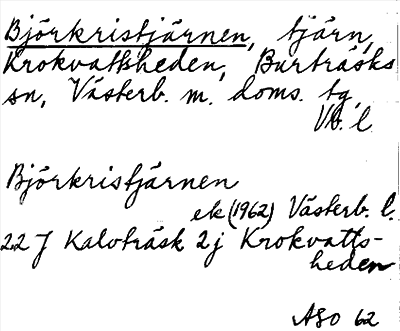 Björkristjärnen, tjärn,
Krokvattsheden, Burträsks
sn, Västerb. m. doms. tg,
Vb. l
Björkristjärnen
ek (1962) Västerb. l.
22 J Kalvträsk 2 j Krokvatts-
heden
ASO 62